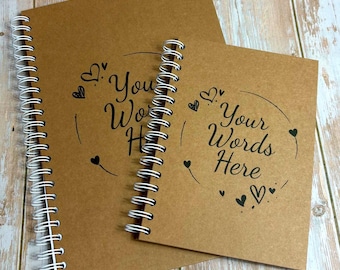 Your
Words
Here
Your
Words
Here